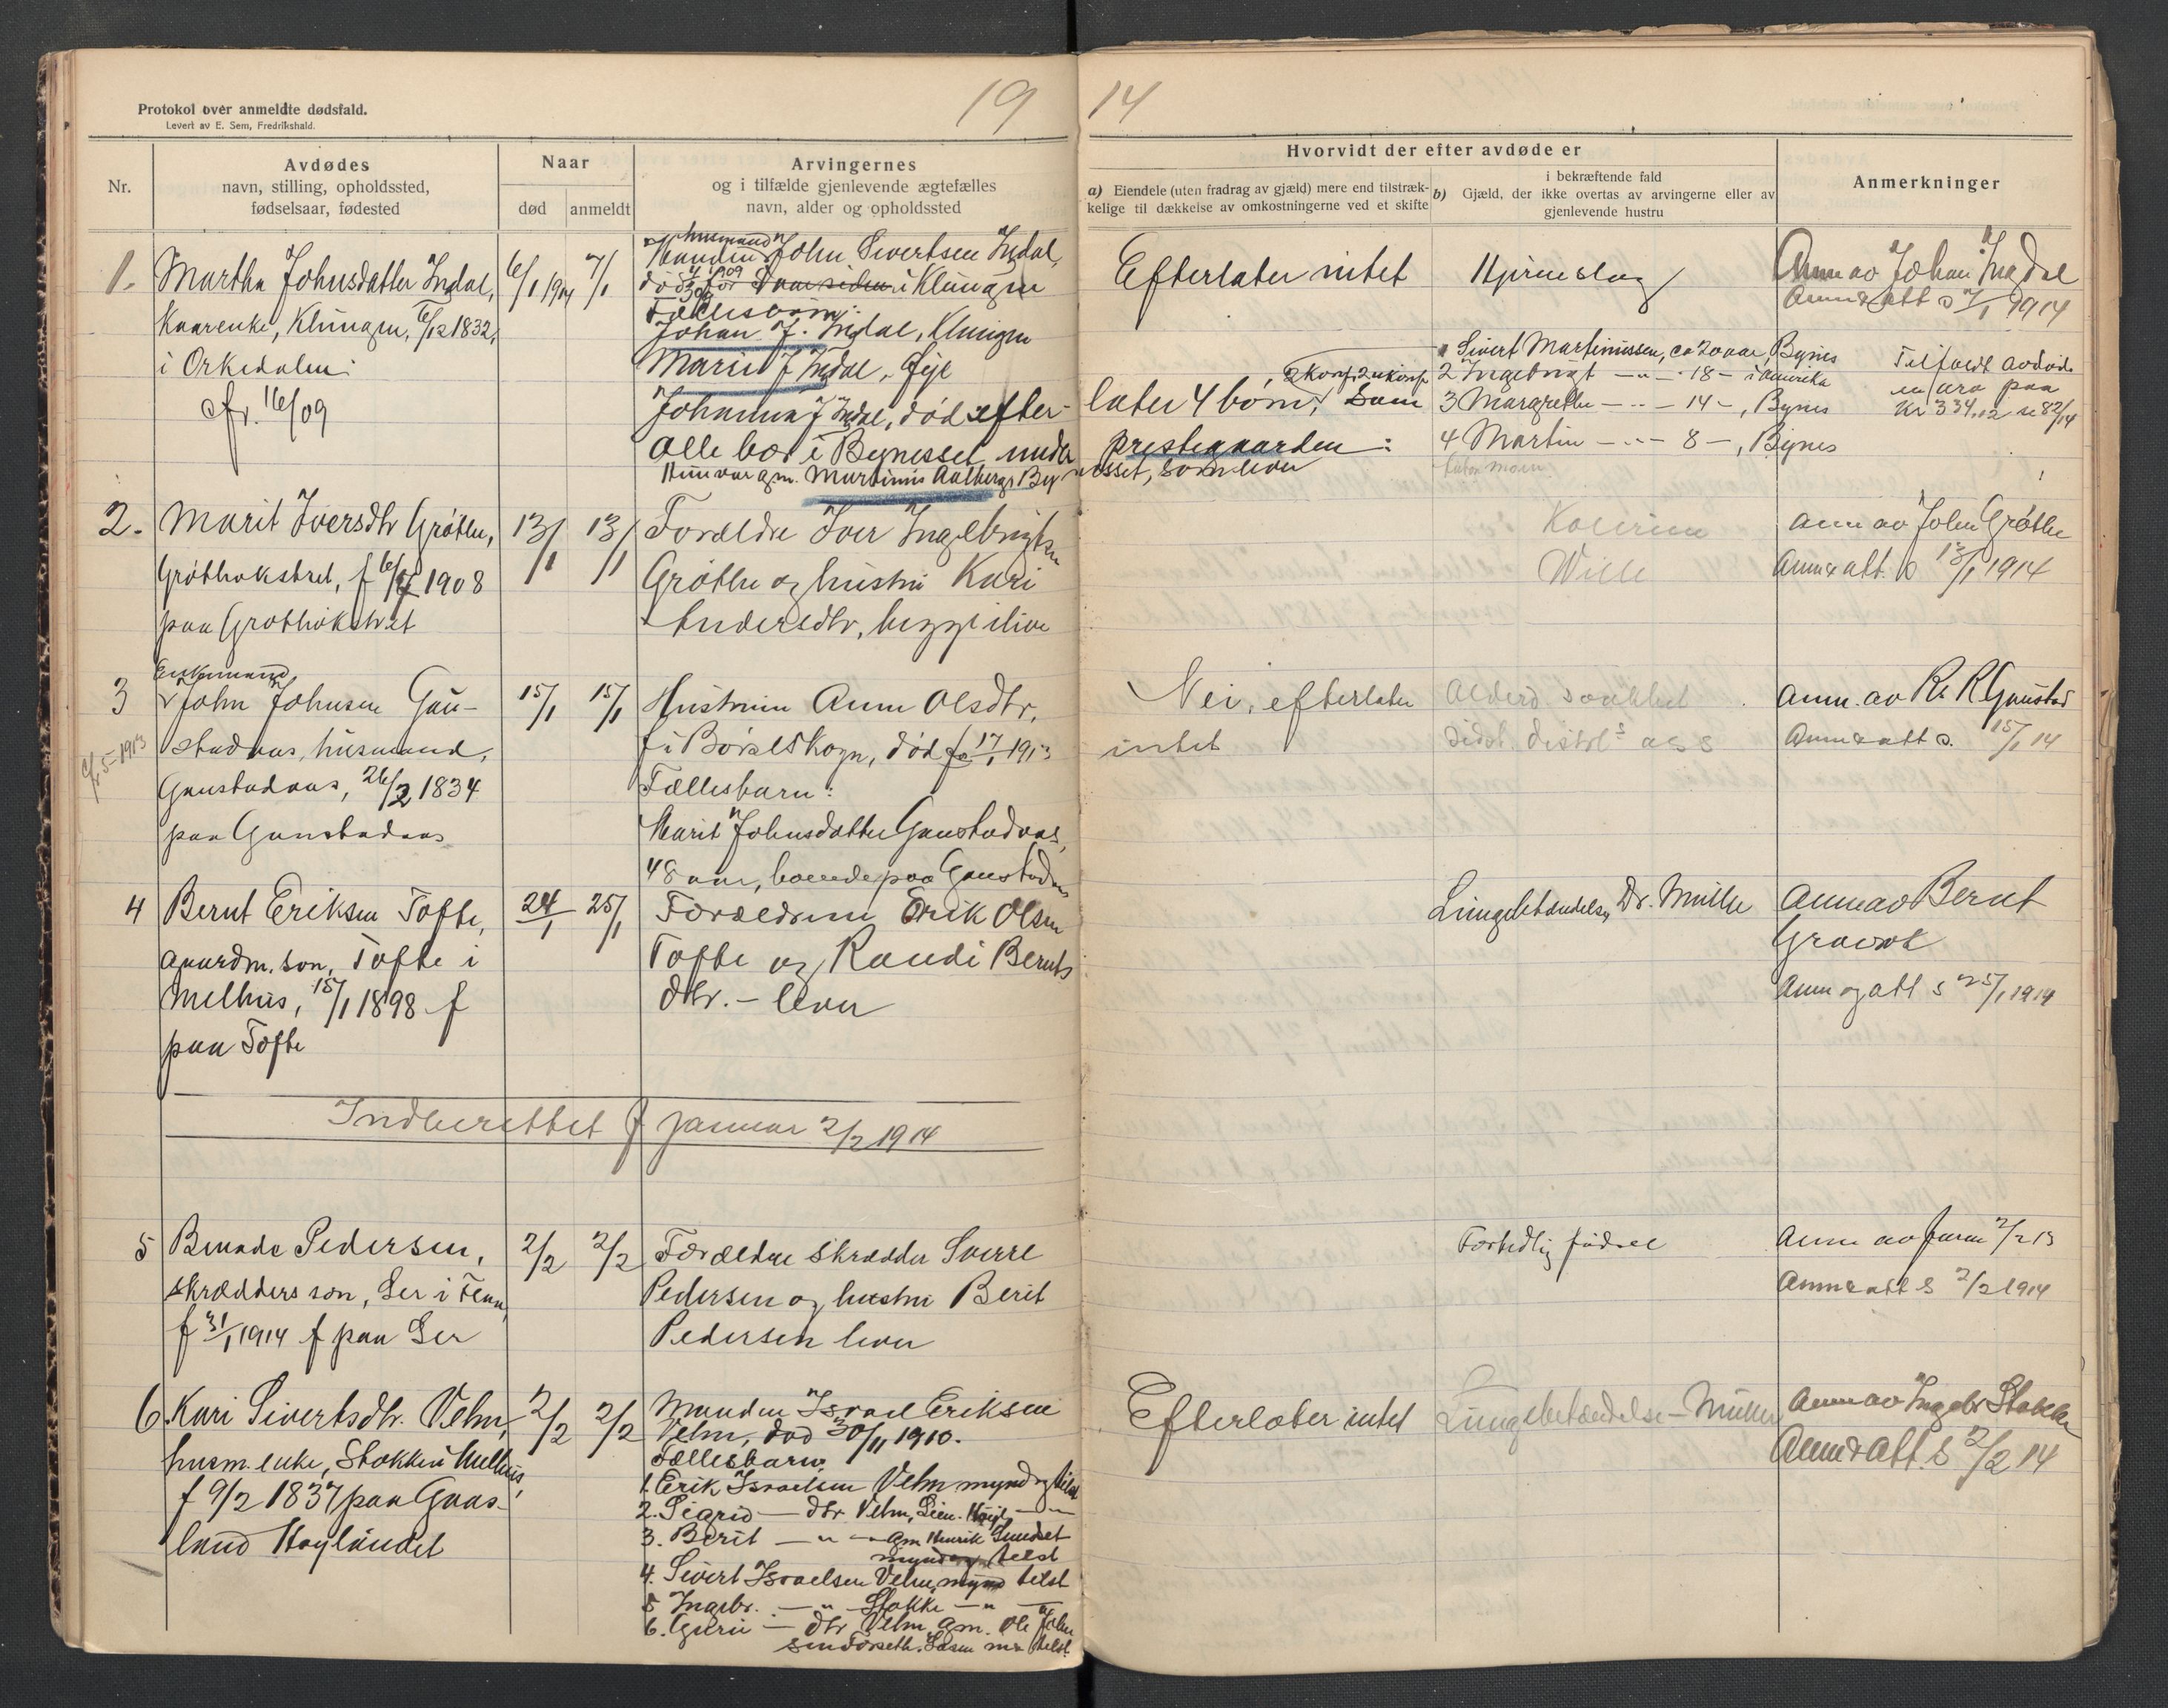 Protokol over anmeldte dødsfald.
Levert av E. Sem, Fredrikshald.
19
Nr.
Avdødes
navn, stilling, opholdssted,
fødselsaar, fødested
Naar
død
anmeldt
Arvingernes
og i tilfælde gjenlevende ægtefælles
navn, alder og opholdssted
1.
Martha Johnsdatter Indal,
Kaarenke, Klungen, 6/12 1832,
i Orkedalen.
cfr. 16/09
6/1 1914
7/1
husmand
Manden John Sivertsen Indal,
død for 5 aar siden i Klungen
Fællesbørn:
Johan J. Indal, Klungen
Marit J Indal, Øye
Johanna J Indal, død efter-
Alle bor i Bynesset under
Hun var gm. Martinus Aalberg, By-
2.
Marit Iversdtr Grøtte,
Grøthokstret, f 6/7 1908
paa Grøthokstret
13/1
13/1
Forældre Iver Ingebrigtsen
Grøtte og hustru Kari
Andersdtr, begge ilive
3
cfr. 5-1913
Enkemand
John Johnsen Gau-
stadaas, husmand,
Gaustadaas, 26/2 1834
paa Gaustadaas
15/1
15/1
Hustruen Ane Olsdtr,
f i Børseskogn, død 17/1 1913
Fællesbarn:
Marit Johnsdatter Gaustadaas,
48 aar, boende paa Gaustadaas
4
Bernt Eriksen Tofte,
gaardm. søn, Tofte i
Melhus, 15/1 1898 f
paa Tofte
24/1
25/1
Forældrene Erik Olsen
Tofte og Randi Bernts
dtr. - lever
Indberettet f januar 2/2 1914
5
Pedersen,
skrædders søn, Ler i Flaa,
f 31/1 1914 f paa Ler
2/2
2/2
Forældre skrædder Sverre
Pedersen og hustru Berit
Pedersen lever
6.
Kari Sivertsdtr. Velm,
husm. enke, Stokken Melhus,
f 9/2 1837 paa Gaas-
land Høylandet
2/2
2/2
Manden Israel Eriksen
Velm, død 30/11 1910.
Fællesbarn:
1. Erik Israelsen Velm mynd og tilst
2. Sigrid — dtr Velm, Lien. Høyl. — " —
3. Berit — " — gm Henrik Sundset
mynd og tilst
4. Sivert Israelsen Velm, mynd tilst
5 Ingebr. — " — Stokke — " —
6. Guru — dtr Velm gm. Ole John
sen Forseth. Løsen mn tilst.
14
Hvorvidt der efter avdøde er
a) Eiendele (uten fradrag av gjæld) mere end tilstræk-
kelige til dækkelse av omkostningerne ved et skifte
b)
i bekræftende fald
Gjæld, der ikke overtas av arvingerne eller av
gjenlevende hustru
Anmerkninger
Efterlater intet
Hjerneslag
Anm av Johan Indal
Anm & att s 7/1 1914
2 konf. 2 ukonf.
later 4 børn, som
prestegaarden:
nesset, som lever
1 Sivert Martinussen, ca 20 aar, Bynes
2 Ingebrigt — " — 18 — i Amerika
3 Margrethe — " — 14 —, Bynes
4 Martin — " — 8 —, Bynes
Tilfaldt avdøde
en arv paa
Kr 334.12 se 82/14
Wille
anm av John Grøtte
Anm & att. s 13/1 1914
Nei, efterlater
intet
Alderd svakhet
anm. av R. R Gaustad
Anm & att s. 15/1 14
Lungebetændelse, Dr. Müller
Anm av Bernt
Gravrok
Anm og att s 25/1 1914
Fortidlig fødsel
Anm av faren 2/2 13
Anm & att s 2/2 1914
Efterlater intet
Lungebetændelse - Müller
Anm av Ingebr Stokke
Anm & att. s 2/2 14